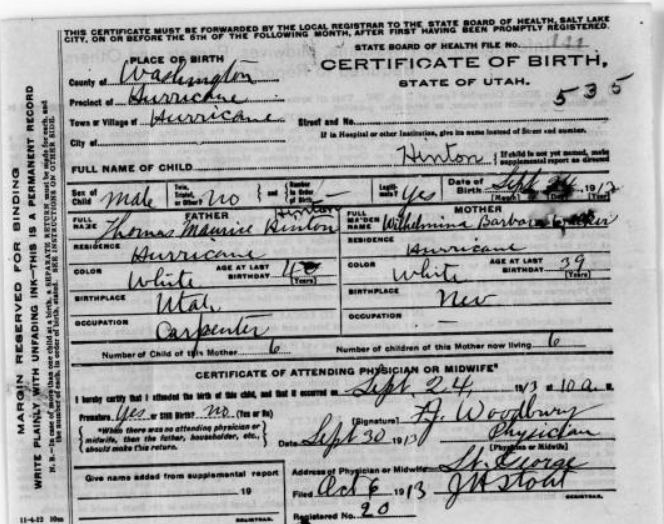 THIS CERTIFICATE MUST BE FORWARDED BY THE LOCAL REGISTRAR TO THE STATE BOARD OF HEALTH, SALT LAKE
CITY, ON OR BEFORE THE 5TH OF THE FOLLOWING MONTH, AFTER FIRST HAVING BEEN PROMPTLY REGISTERED.
STATE BOARD OF HEALTH FILE No.
PLACE OF BIRTH
CERTIFICATE OF BIRTH,
County of Washington
STATE OF UTAH.
Precinct of Hurricane
535
Town or Village of Hurricane Street and No.
If in Hospital or other Institution, give its name instead of Street and number.
City of
FULL NAME OF CHILD Hinton { If child is not yet named, make supplemental report as directed
Sex of Child Male Twin, Triplet, or Other? No } and { Number in Order of Birth — Legitimate? Yes Date of Birth Sept 24, 1913
(Month) (Day) (Year)
FATHER
FULL NAME Thomas Maurice Hinton Hinton
RESIDENCE Hurricane
COLOR White AGE AT LAST BIRTHDAY (Years)
BIRTHPLACE Utah
OCCUPATION Carpenter
MOTHER
FULL MAIDEN NAME Wilhelmina Barbara
RESIDENCE Hurricane
COLOR White AGE AT LAST BIRTHDAY 39 (Years)
BIRTHPLACE Nev
OCCUPATION —
Number of Child of this Mother 6 Number of children of this Mother now living 6
CERTIFICATE OF ATTENDING PHYSICIAN OR MIDWIFE*
I hereby certify that I attended the birth of this child, and that it occurred on Sept. 24, 1913 at 10 a. M.
Premature Yes or Still Birth? No (Yes or No)
{ *When there was no attending physician or midwife, then the father, householder, etc., should make this return. }
(Signature) Woodbury
Date Sept 30 1913 Physician
(Physician or Midwife)
Give name added from supplemental report
19
REGISTRAR.
Address of Physician or Midwife St. George
Filed Oct 6 1913 J H Stout
REGISTRAR.
Registered No. 20
11-4-12 10m
MARGIN RESERVED FOR BINDING
WRITE PLAINLY WITH UNFADING INK—THIS IS A PERMANENT RECORD
N. B.—In case of more than one child at a birth, a SEPARATE RETURN must be made for each, and
the number of each, in order of birth, stated. SEE INSTRUCTIONS ON OTHER SIDE.